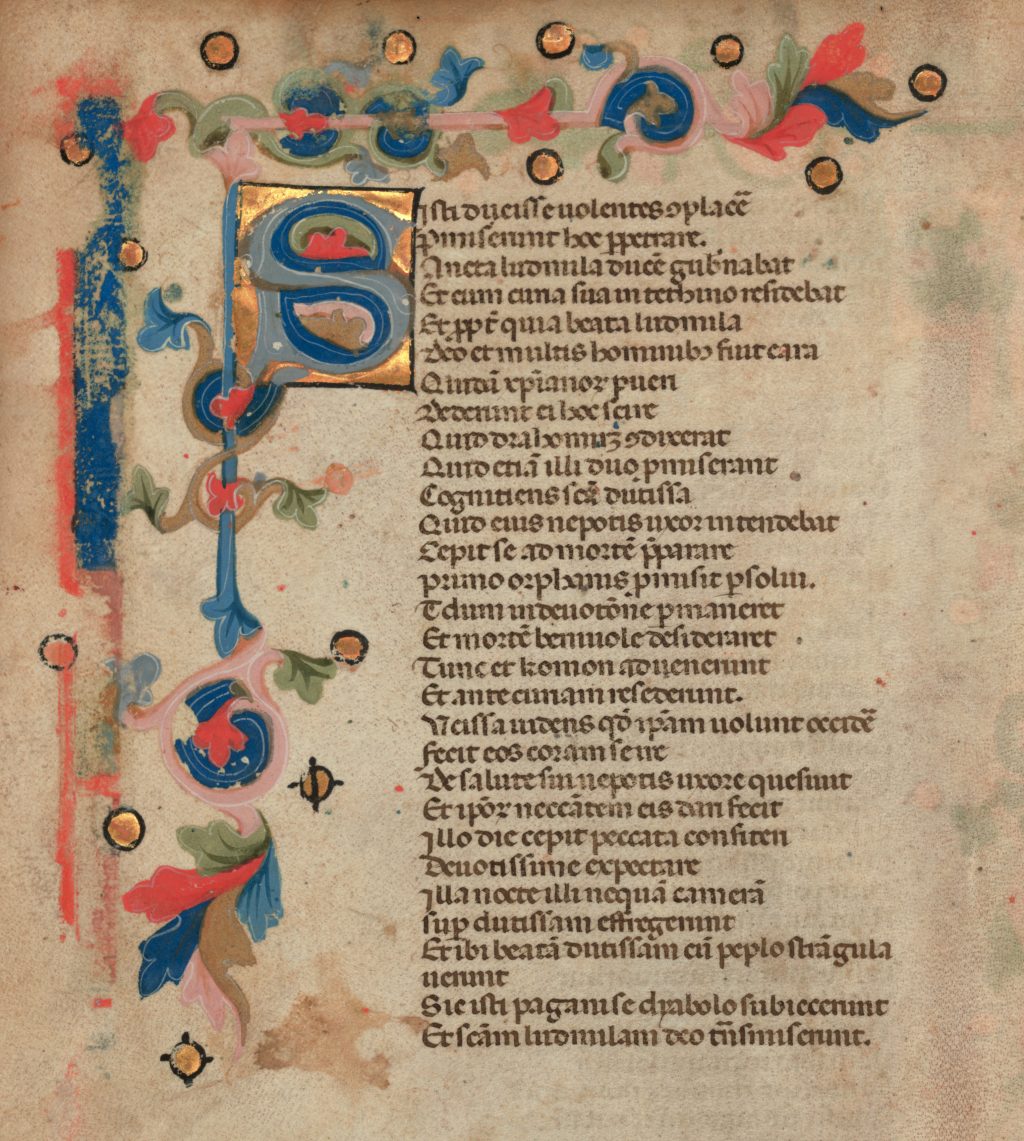 Isti ducisse uolentes ꝯplacē
Pmiserunt hoc ꝑpetrare.
Ancta ludmila ducē gub'nabat
Et cum cuna sua in tethino residebat
Et ꝓpt' quia beata ludmila
Deo et multis hominibꝫ fiut cara
Quidā xp̄ianoꝝ pueri
Dederunt ei hoc scire
Quid drahomuꝫ ꝯdixerat
Quid etiā illi duo pmiserant
Cognitiens scā dutissa
Quid eius nepotis uxor intendebat
Cepit se ad mortē p̄parare
primo orphanis pmisit ꝑsolui.
Tdum in deuotōne ꝑmaneret
Et mortē beniuole desideraret
Tunc et komon aduenerunt
Et ante cunam resederunt.
Ucissa uidens qd̄ ip̄am uolunt occidē
fecit eos coram se ire
De salute sui nepotis uxore quesiuit
Et ip̄oꝝ neccātem eis dari fecit
Illo die cepit peccata confiteri
Deuotissime expectare
Illa nocte illi nequā camerā
suꝑ dutissam effregerunt
Et ibi beatā dutissam cū peplo strāgula
uerunt
Sic isti pagani se dyabolo subiecerunt
Et scām ludmilam deo tn̄smiserunt.